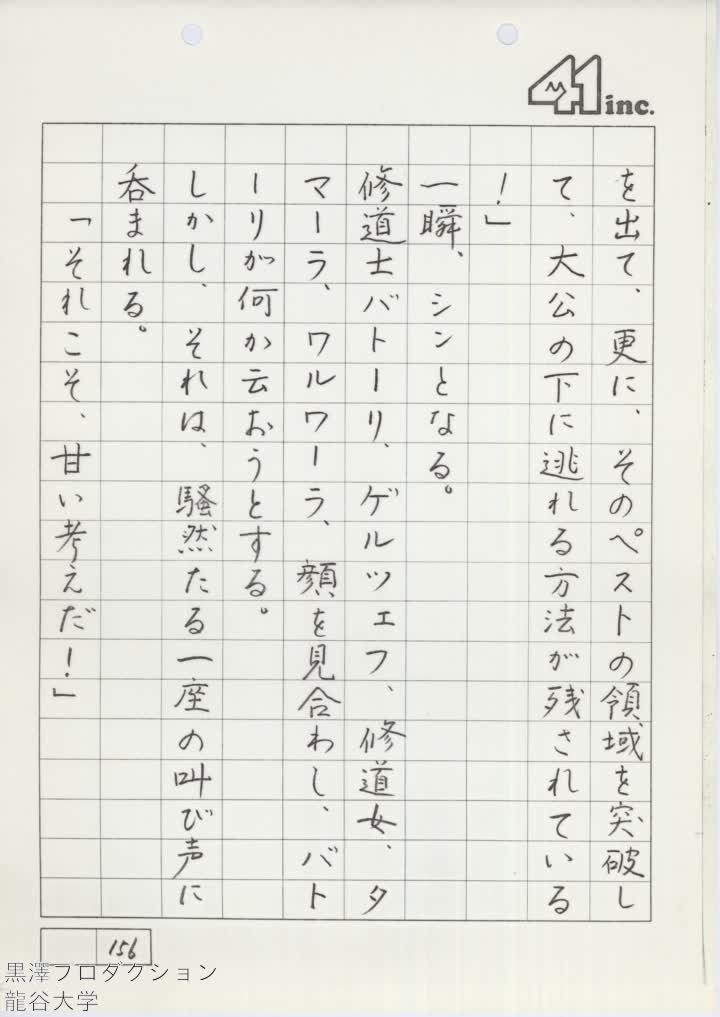 41 inc.
を出て、更に、そのペストの領域を突破し
て、大公の下に逃れる方法が残されている
！」
一瞬、シンとなる。
修道士バトーリ、ゲルツェフ、修道女、タ
マーラ、ワルワーラ、顔を見合わし、バト
ーリが何か云おうとする。
しかし、それは、騒然たる一座の叫び声に
呑まれる。
「それこそ、甘い考えだ！」
156
黒澤プロダクション
龍谷大学